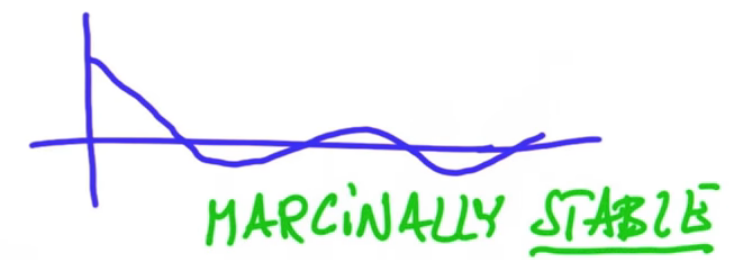 MARGINALLY STABLE